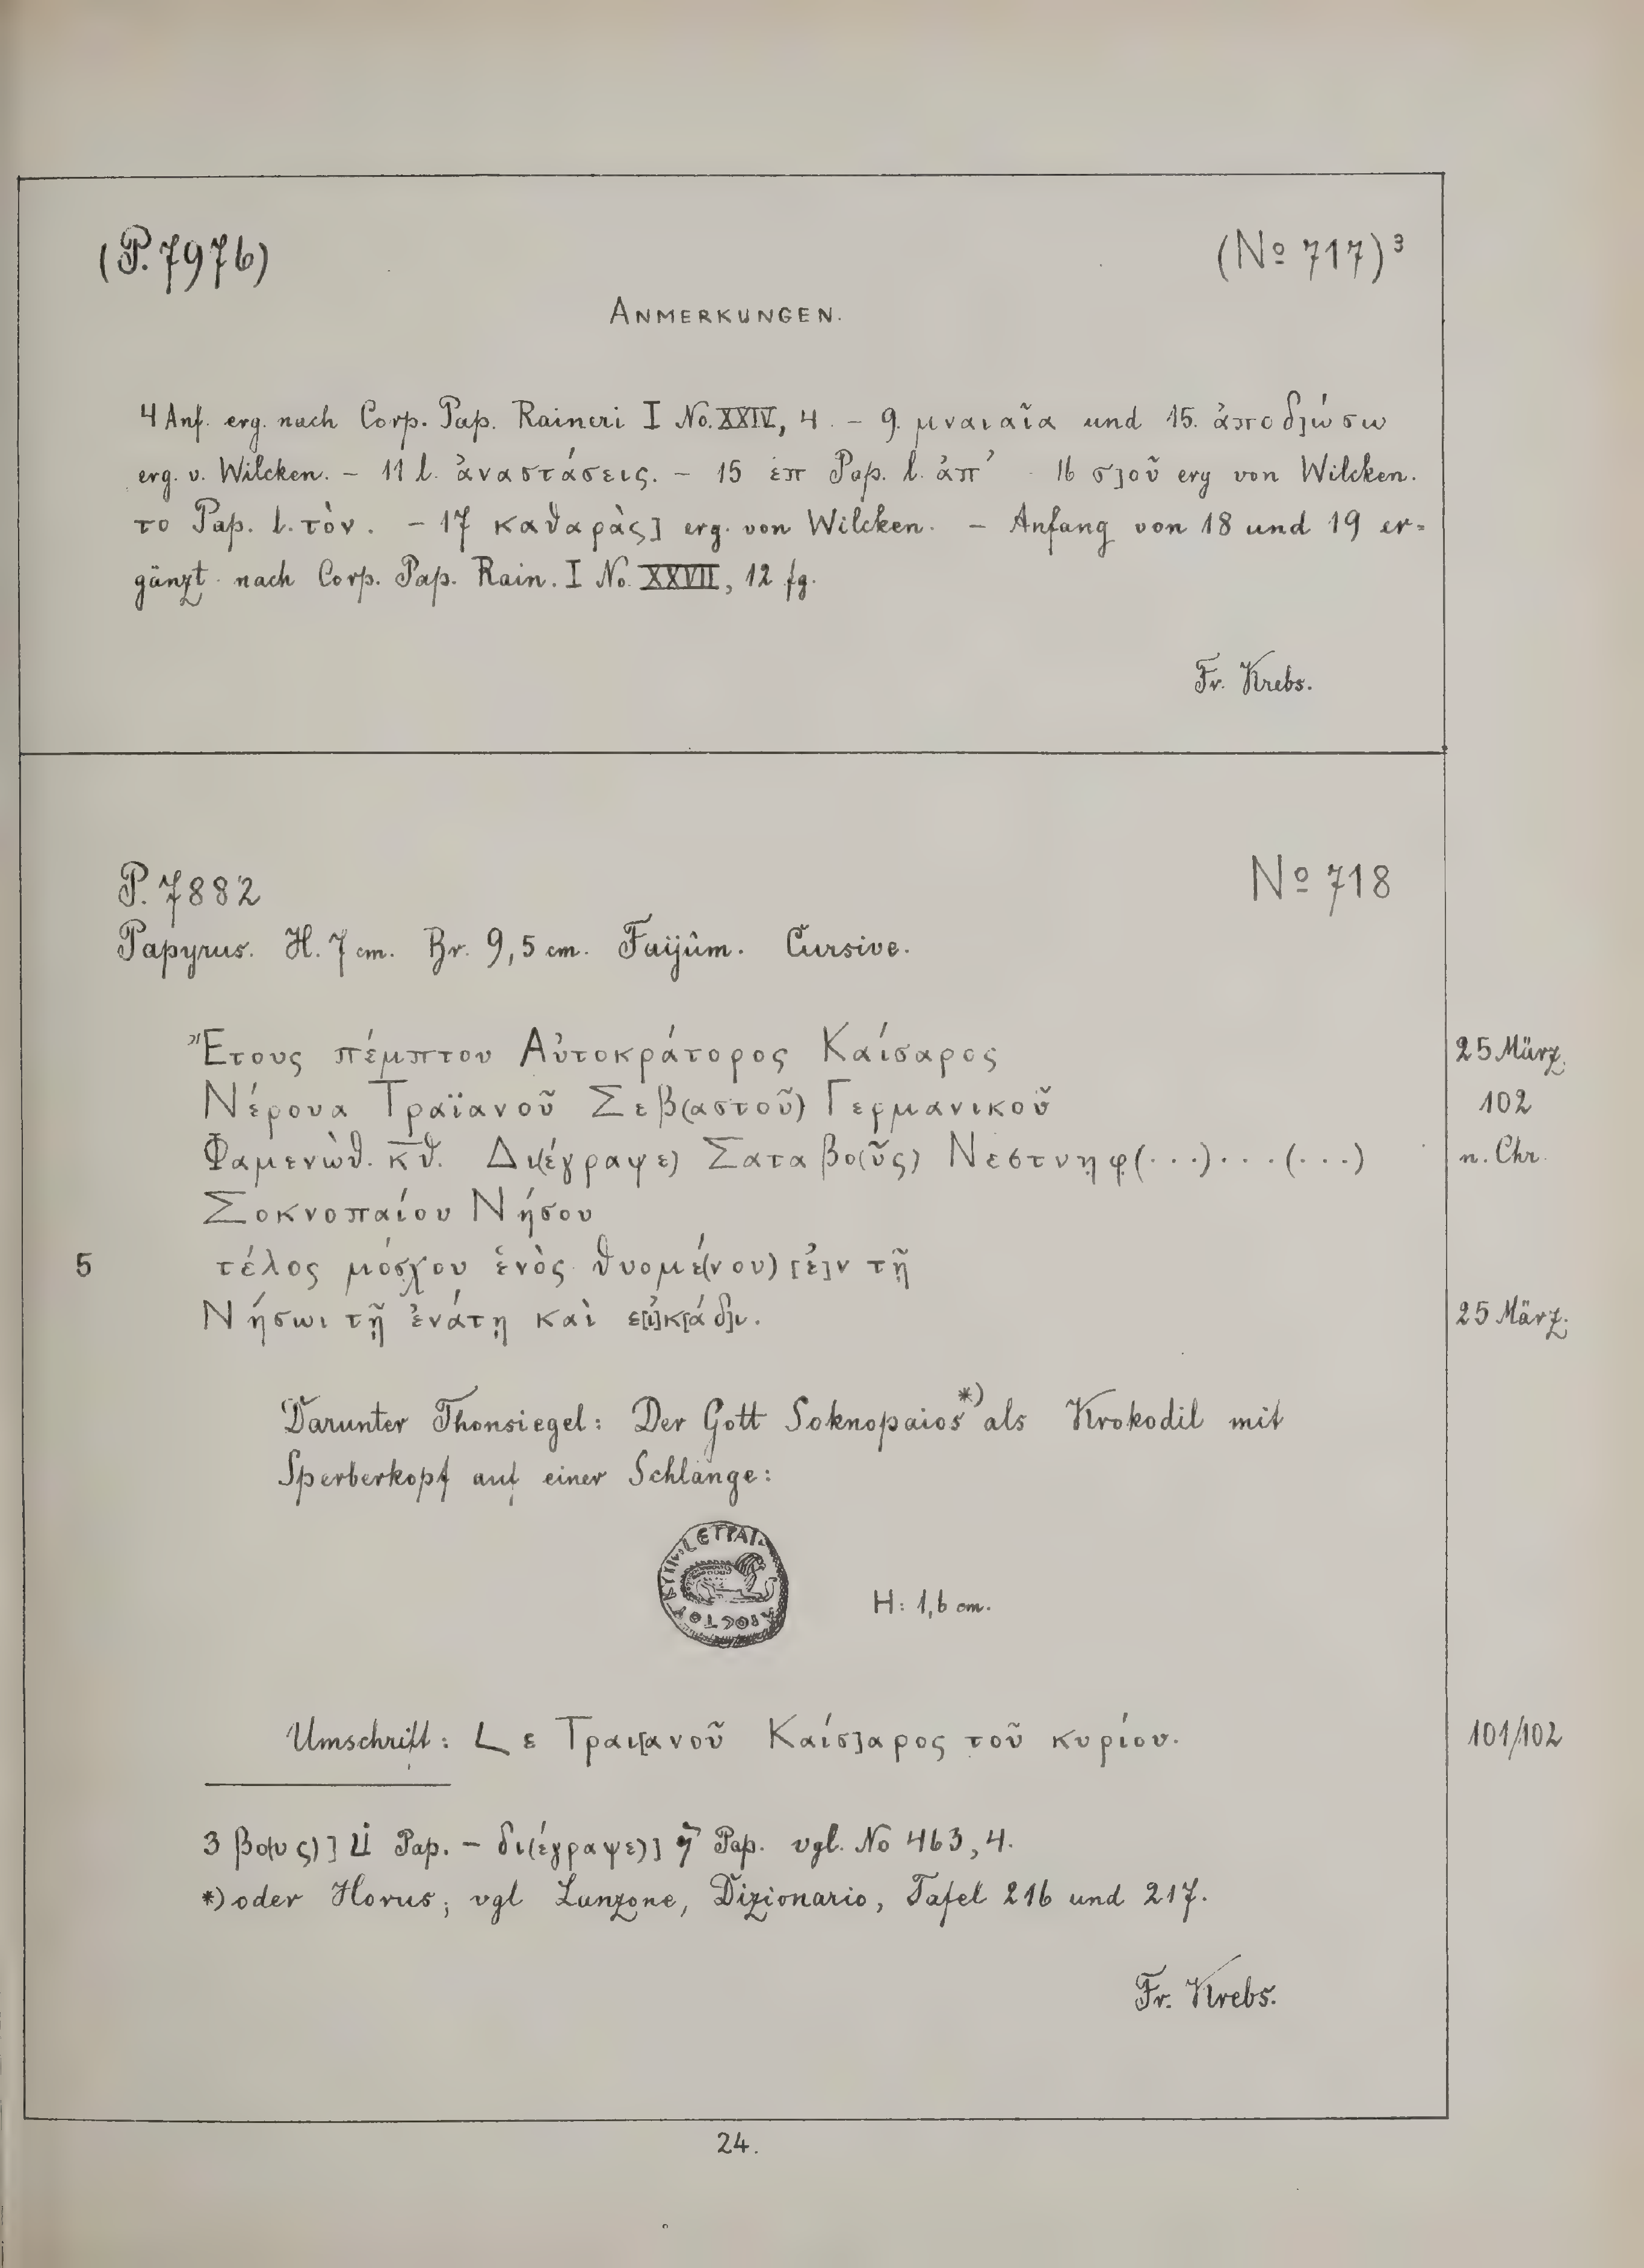 (P. 7976)
(No 717)³
ANMERKUNGEN.
4 Anf. erg. nach Corp. Pap. Raineri I No. XXIV, 4. – 9. μναιαῖα und 15. ἀποδ]ώσω
erg. v. Wilcken. – 11 l. ἀναστάσεις. – 15 ἐπ Pap. l. ἀπ’ 16 σ]οῦ erg von Wilcken.
το Pap. l. τὸν. – 17 καθαρὰς] erg. von Wilcken. – Anfang von 18 und 19 er=
gänzt nach Corp. Pap. Rain. I No. XXVII, 12 fg.
Fr. Krebs.
P. 7882
No 718
Papyrus. H. 7 cm. Br. 9,5 cm. Faijûm. Cursive.
Ἔτους πέμπτου Αὐτοκράτορος Καίσαρος
25 März.
Νέρουα Τραϊανοῦ Σεβ(αστοῦ) Γερμανικοῦ
102
Φαμενὼθ. κθ. Δι(έγραψε) Σαταβο(ῦς) Νεστνηφ(···)···(···)
n. Chr.
Σοκνοπαίου Νήσου
5 τέλος μόσχου ἑνὸς θυομέ(νου) [ἐ]ν τῇ
Νήσωι τῇ ἐνάτῃ καὶ ε[ἰ]κ[άδ]ι.
25 März.
Darunter Thonsiegel: Der Gott Soknopaios*) als Krokodil mit
Sperberkopf auf einer Schlange:
H: 1,6 cm.
Umschrift: L ε Τραι[ανοῦ Καίσ]αρος τοῦ κυρίου.
101/102
3 βο(υς)] Pap. – δι(έγραψε)] Pap. vgl. No 463,4.
*) oder Horus; vgl Lanzone, Dizionario, Tafel 216 und 217.
Fr. Krebs.
24.